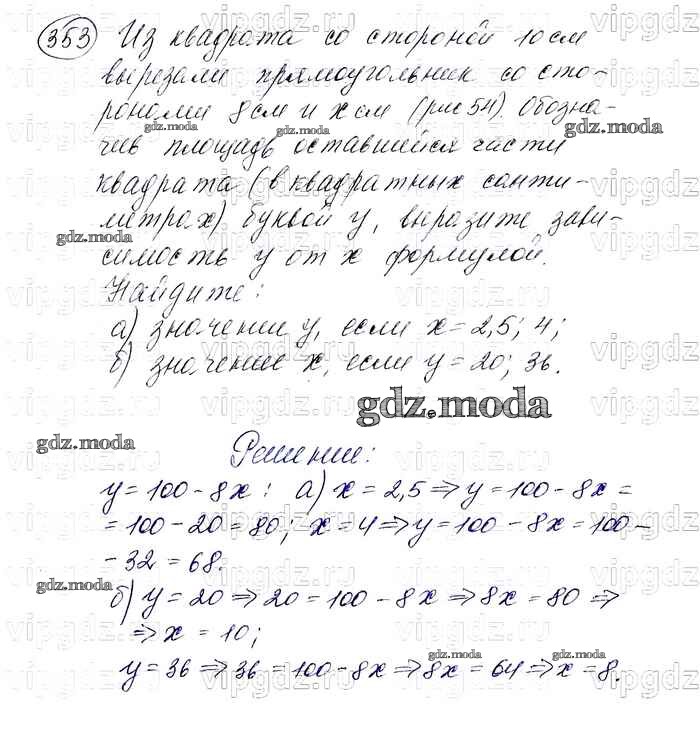 353 Из квадрата со стороной 10 см
вырезали прямоугольник со сто-
ронами 8 см и x см (рис 54). Обозна-
gdz.moda gdz.moda
чив площадь оставшейся части
квадрата (в квадратных санти-
метрах) буквой y, выразите зави-
gdz.moda
симость y от x формулой.
Найдите:
а) значении y, если x = 2,5; 4;
б) значение x, если y = 20; 36.
gdz.moda
gdz.moda
Решение:
y = 100 - 8x: а) x = 2,5 ⇒ y = 100 - 8x =
= 100 - 20 = 80; x = 4 ⇒ y = 100 - 8x = 100 -
- 32 = 68.
gdz.moda
б) y = 20 ⇒ 20 = 100 - 8x ⇒ 8x = 80 ⇒
⇒ x = 10;
gdz.moda gdz.moda
y = 36 ⇒ 36 = 100 - 8x ⇒ 8x = 64 ⇒ x = 8.
gdz.moda